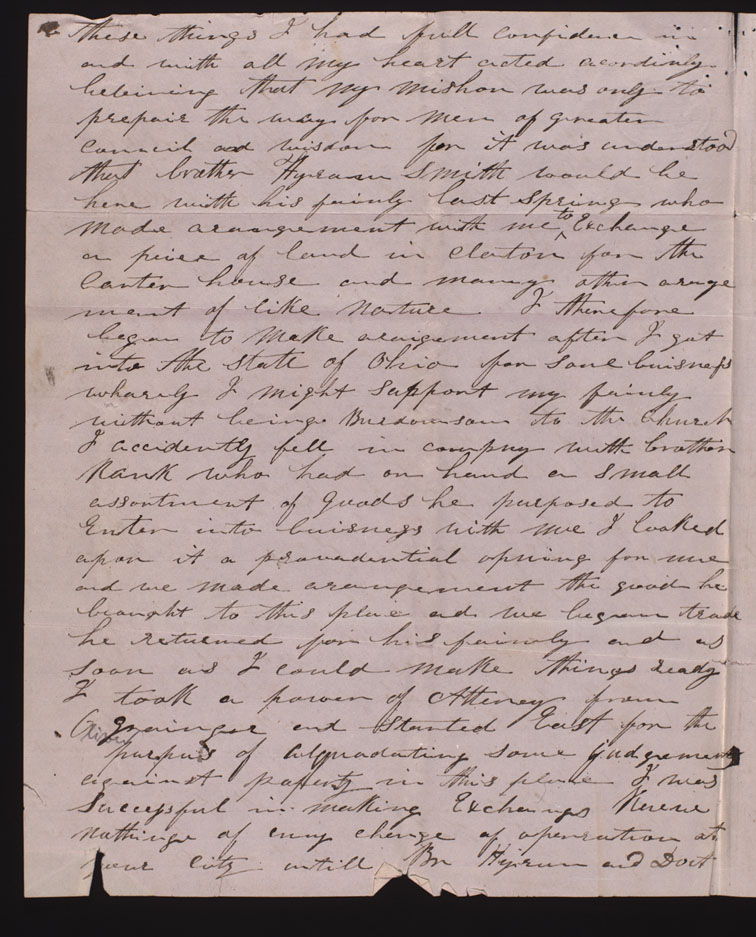 these things I had full confidence in
and with all my heart acted acordingly
beleiving that my mishon was only to
prepair the way for men of greater
council ad wisdom for it was understood
that brother Hyram Smith would be
here with his faimly last Spring who
made arangement with me to Exchange
a peice of land in Claton for the
Carter house and manny other arange
ment of like nature I therefore
began to make araigement after I got
into the State of Ohio for some buisness
wharely I might Support my faimly
without being Burdownsom to the Church
I accidently fell in compny with brother
Rank who had on hand a small
assortment of goods he purposed to
Enter into buisness with me I looked
apon it a provadential opning for me
and we made arangement the good he
braught to this place ad we began trade
he returned for his faimly and as
soon as I could make things ready
I took a power of Atterney from
Oliver grainger and started East for the
purpus of alquadating some judgements
against paperty in this place I was
Successful in making Exchangs Knew
nothinge of enny change of openration at
your City untill Br Hyrum and Doct